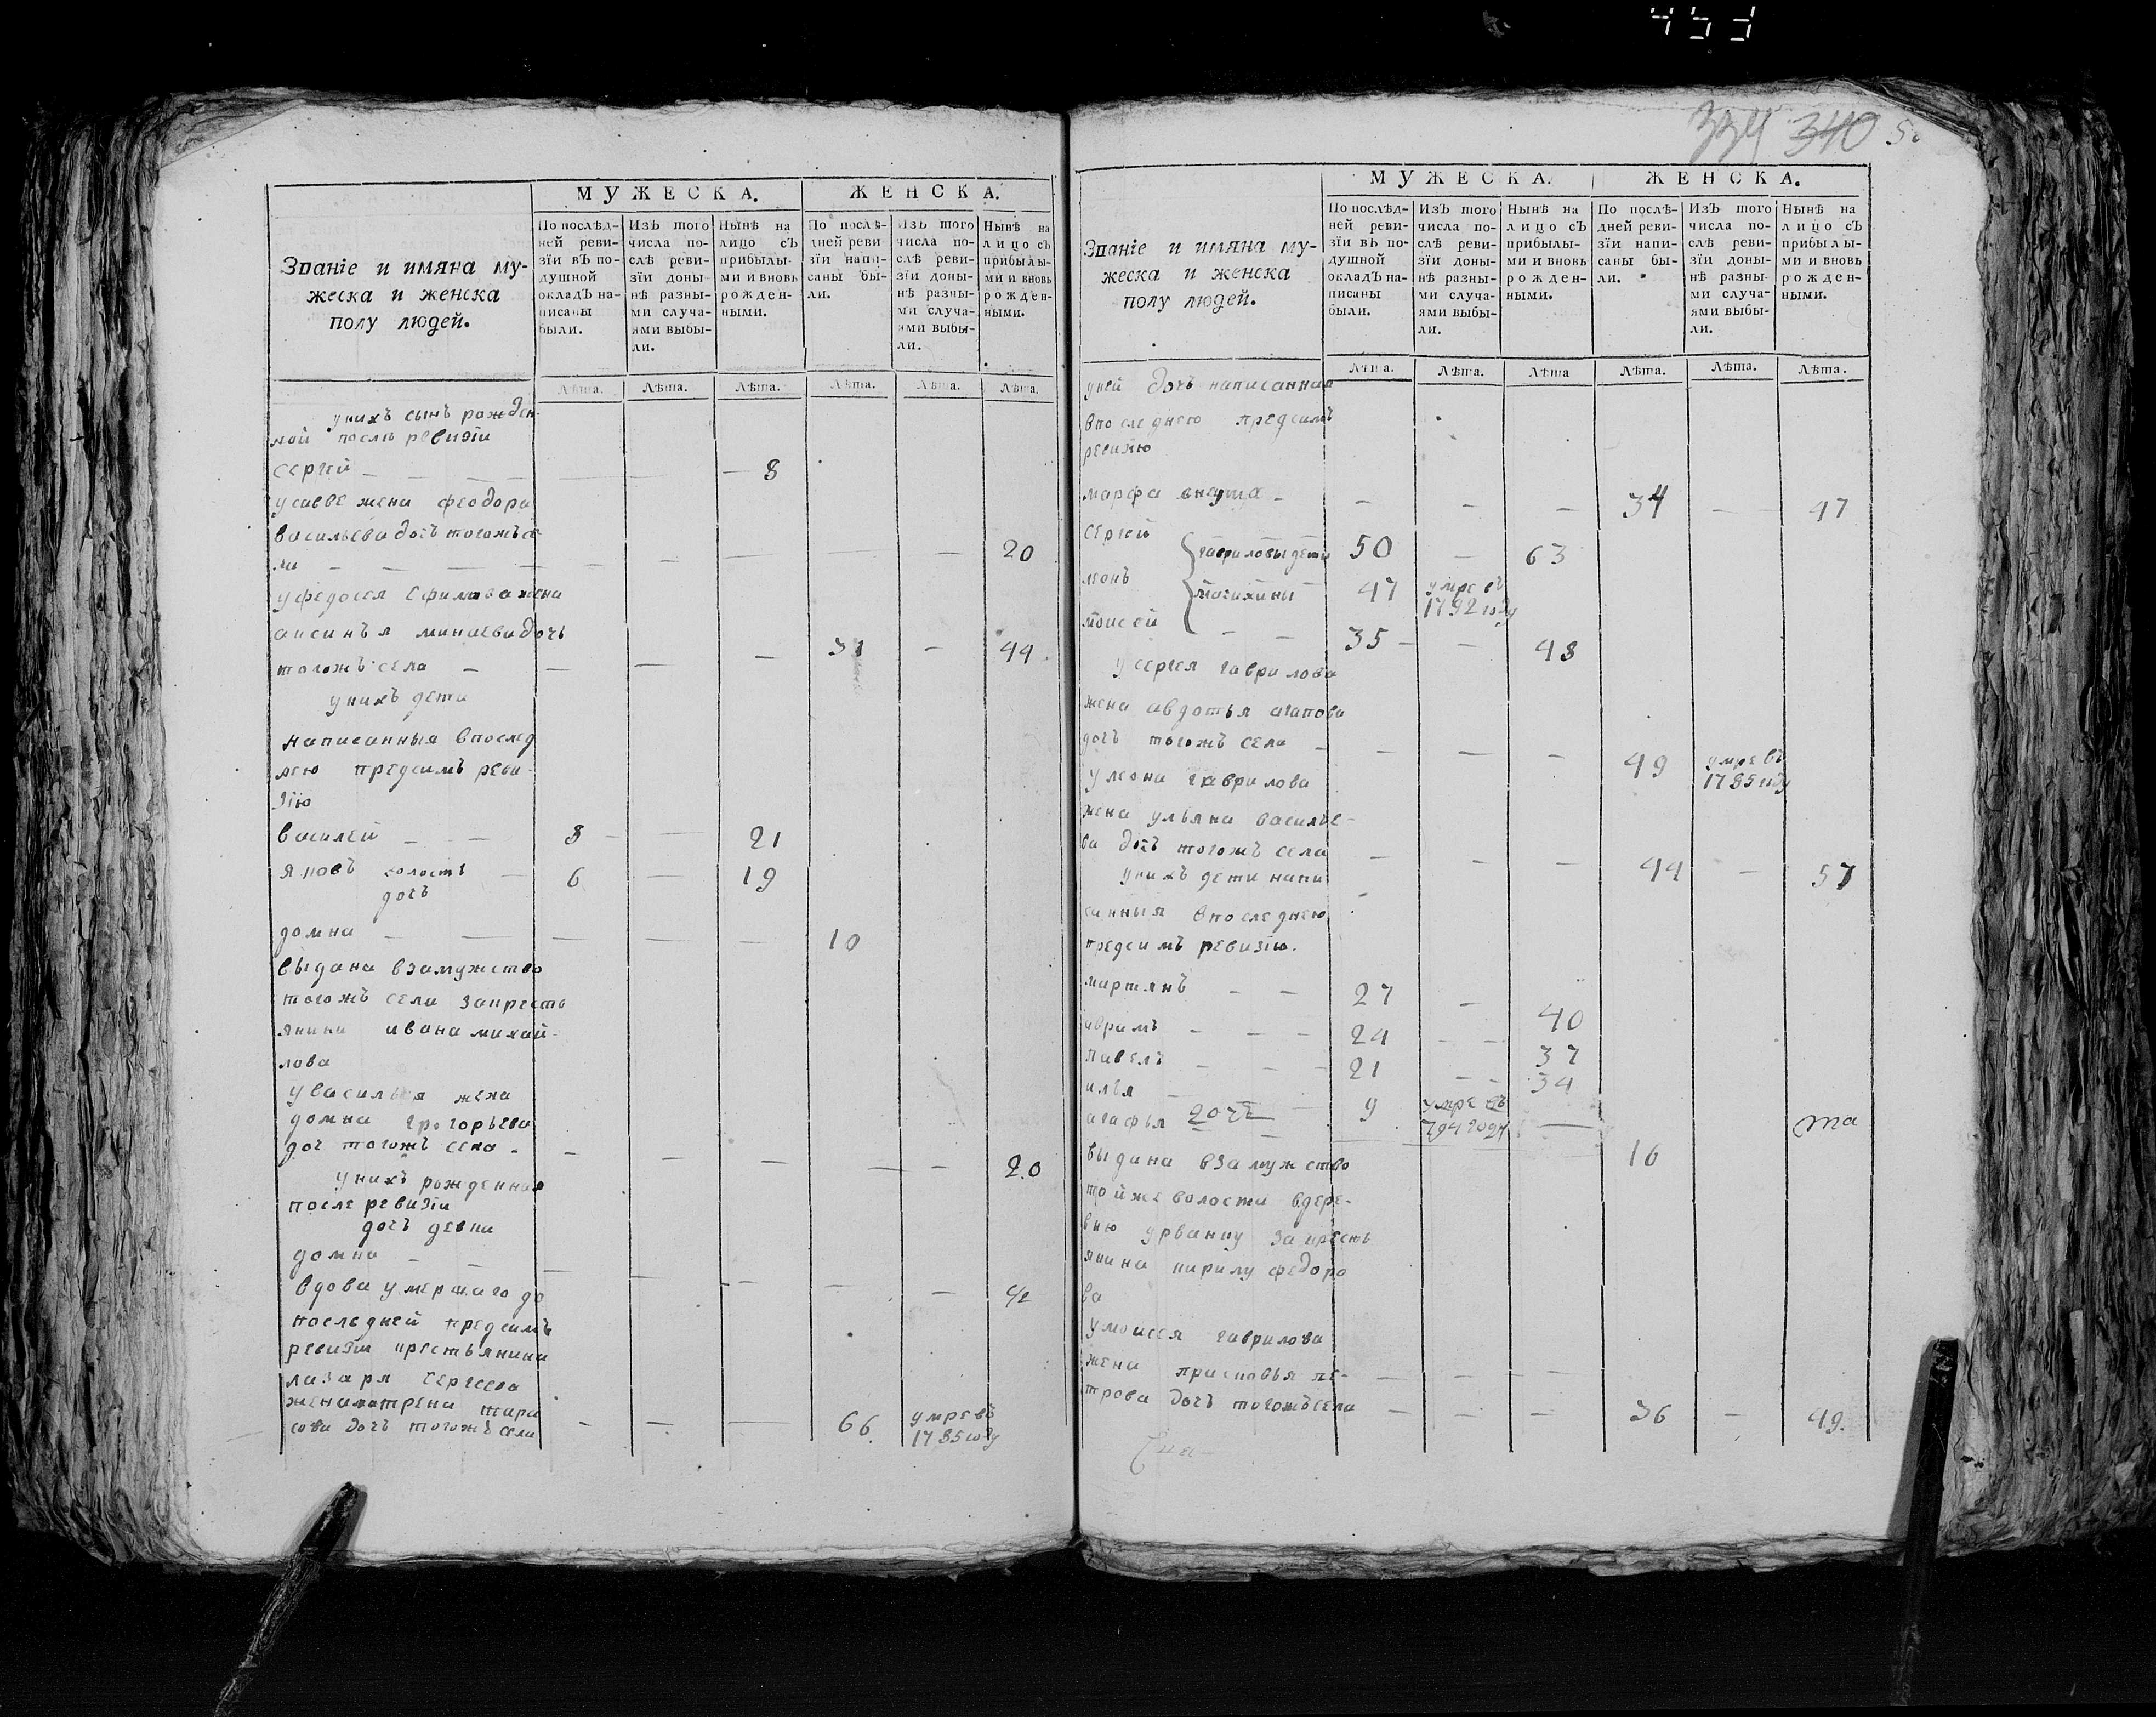 453
334 340
МУЖЕСКА. ЖЕНСКА.
Званіе и имяна му-
жеска и женска
полу людей.
По послѣд-
ней реви-
зіи вЪ по-
душной
окладЪ на-
писаны
были.
ИзЪ того
числа по-
слѣ реви-
зіи доны-
нѣ разны-
ми случа-
ями выбы-
ли.
Нынѣ на
лицо сЪ
прибылы-
ми и вновь
рожден-
ными.
По послѣ-
дней реви
зіи напи-
саны бы-
ли.
ИзЪ того
числа по-
слѣ реви-
зіи доны-
нѣ разны-
ми случа-
ями выбы-
ли.
Нынѣ на
лицо сЪ
прибылы-
ми и вновь
рожден-
ными.
Лѣта. Лѣта. Лѣта. Лѣта. Лѣта. Лѣта.
унихъ сынъ рожден-
ной послѣ ревизіи
сергей — 8
жена феодора
васильева дочъ тогожъ се
ла — 20
уфедосея ефимова жена
аксинья минаева дочь
тогожъ села — 31 — 44
унихъ дети
написанныя впослед
нею предсимъ реви-
зію
василей — 8 — 21
яковъ холостъ — 6 — 19
дочъ
домна — 10
выдана взамужство
тогожъ села закресть
янина ивана михай-
лова
увасилья жена
домна григорьева
доч тогожъ села — 20
унихъ рожденная
после ревизіи
дочъ девка
домна —
вдова умершаго до
последней предсимъ
ревизіи крестьянина
лазаря сергеева
жена матрена тара
сова дочъ тогожъ села — 66 умре въ
1785 году
МУЖЕСКА. ЖЕНСКА.
Званіе и имяна му-
жеска и женска
полу людей.
По послѣд-
ней реви-
зіи вЪ по-
душной
окладЪ на-
писаны
были.
ИзЪ того
числа по-
слѣ реви-
зіи доны-
нѣ разны-
ми случа-
ями выбы-
ли.
Нынѣ на
лицо сЪ
прибылы-
ми и вновь
рожден-
ными.
По послѣ-
дней реви-
зіи напи-
саны бы-
ли.
ИзЪ того
числа по-
слѣ реви-
зіи доны-
нѣ разны-
ми случа-
ями выбы-
ли.
Нынѣ на
лицо сЪ
прибылы-
ми и вновь
рожден-
ными.
Лѣта. Лѣта. Лѣта Лѣта. Лѣта. Лѣта.
уней дочъ написанная
впоследнею предсимъ
ревизію
марфа — 34 — 47
сергей гавриловы дети 50 — 63
леонъ 47 умре въ
1792 году
моисей — 35 — 48
у сергея гаврилова
жена авдотья агапова
дочъ тогожъ села — 49 умре въ
1785 году
улеона гаврилова
жена ульяна василье-
ва дочъ тогожъ села — 44 — 57
унихъ дети напи
санныя впоследнею
предсимъ ревизію.
мартянъ — 27 — 40
аврамъ — 24 — 37
павелъ — 21 — 34
илья — 9 умре въ
794 году
агафья дочь — 16
выдана взамужство
тойже волости вдере-
вню урванку закресть
янина кирилу федоро
ва
умоисея гаврилова
жена прасковья пе-
трова дочъ тогожъ села — 36 — 49.